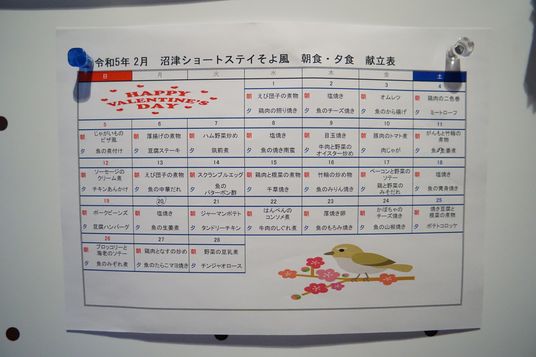 令和5年 2月 沼津ショートステイそよ風 朝食・夕食 献立表
日 月 火 水 木 金 土
HAPPY
VALENTINE'S
DAY
1 2 3 4
朝 えび団子の煮物 朝 塩焼き 朝 オムレツ 朝 鶏肉の二色巻
夕 鶏肉の照り焼き 夕 魚のチーズ焼き 夕 魚のから揚げ 夕 ミートローフ
5 6 7 8 9 10 11
朝 じゃがいものピザ風 朝 厚揚げの煮物 朝 ハム野菜炒め 朝 塩焼き 朝 目玉焼き 朝 豚肉のトマト煮 朝 がんもと竹輪の煮物
夕 魚の煮付け 夕 豆腐ステーキ 夕 筑前煮 夕 魚の焼き南蛮 夕 牛肉と野菜のオイスター炒め 夕 肉じゃが 夕 魚の生姜煮
12 13 14 15 16 17 18
朝 ソーセージのクリーム煮 朝 えび団子の煮物 朝 スクランブルエッグ 朝 鶏肉と根菜の煮物 朝 竹輪の炒め物 朝 ベーコンと野菜のソテー 朝 塩焼き
夕 チキンあんかけ 夕 魚の中華だれ 夕 魚のバターポン酢 夕 千草焼き 夕 魚のみりん焼き 夕 鶏と野菜のみそだれ 夕 魚の黄身焼き
19 20 21 22 23 24 25
朝 ポークビーンズ 朝 塩焼き 朝 ジャーマンポテト 朝 はんぺんのコンソメ煮 朝 厚焼き卵 朝 かぼちゃのチーズ焼き 朝 焼き豆腐と根菜の煮物
夕 豆腐ハンバーグ 夕 魚の生姜煮 夕 タンドリーチキン 夕 牛肉のしぐれ煮 夕 魚のもろみ焼き 夕 魚の山椒焼き 夕 ポテトコロッケ
26 27 28
朝 ブロッコリーと海老のソテー 朝 鶏肉となすの炒め 朝 野菜の豆乳煮
夕 魚のみぞれ煮 夕 魚のたらこマヨ焼き 夕 チンジャオロース